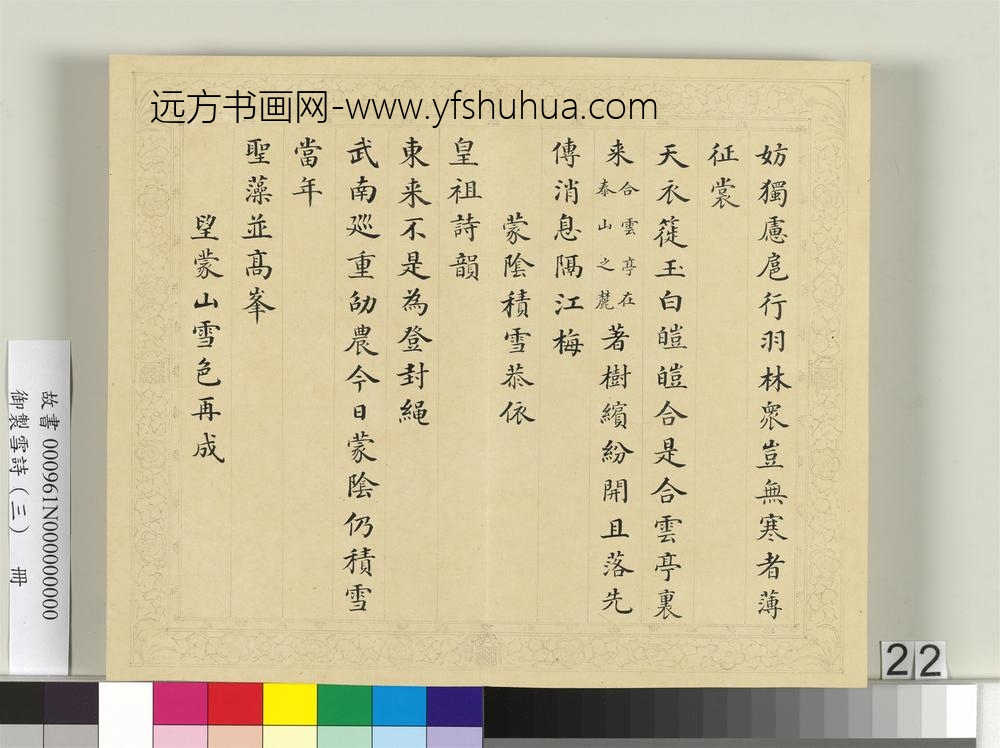 远方书画网-www.yfshuhua.com
妨獨慮扈行羽林衆豈無寒者薄
征裳
天衣簁玉白皚皚合是合雲亭裏
来合雲亭在泰山之麓著樹繽紛開且落先
傳消息隔江梅
蒙陰積雪恭依
皇祖詩韻
東来不是為登封繩
武南廵重劭農今日蒙陰仍積雪
當年
聖藻並髙峯
望蒙山雪色再成
故書 000961N000000000
御製雪詩（三） 冊
22